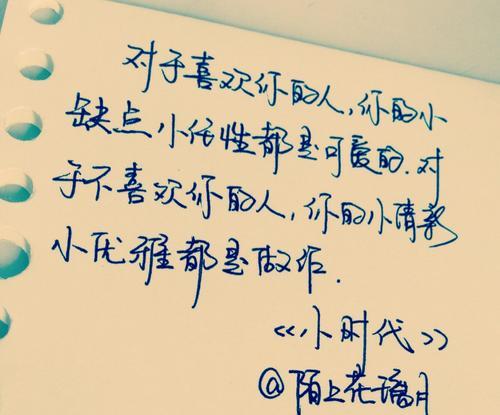 对于喜欢你的人,你的小
缺点小任性都是可爱的.对
于不喜欢你的人,你的小清新
小优雅都是做作.
《小时代》
@陌上花璃月